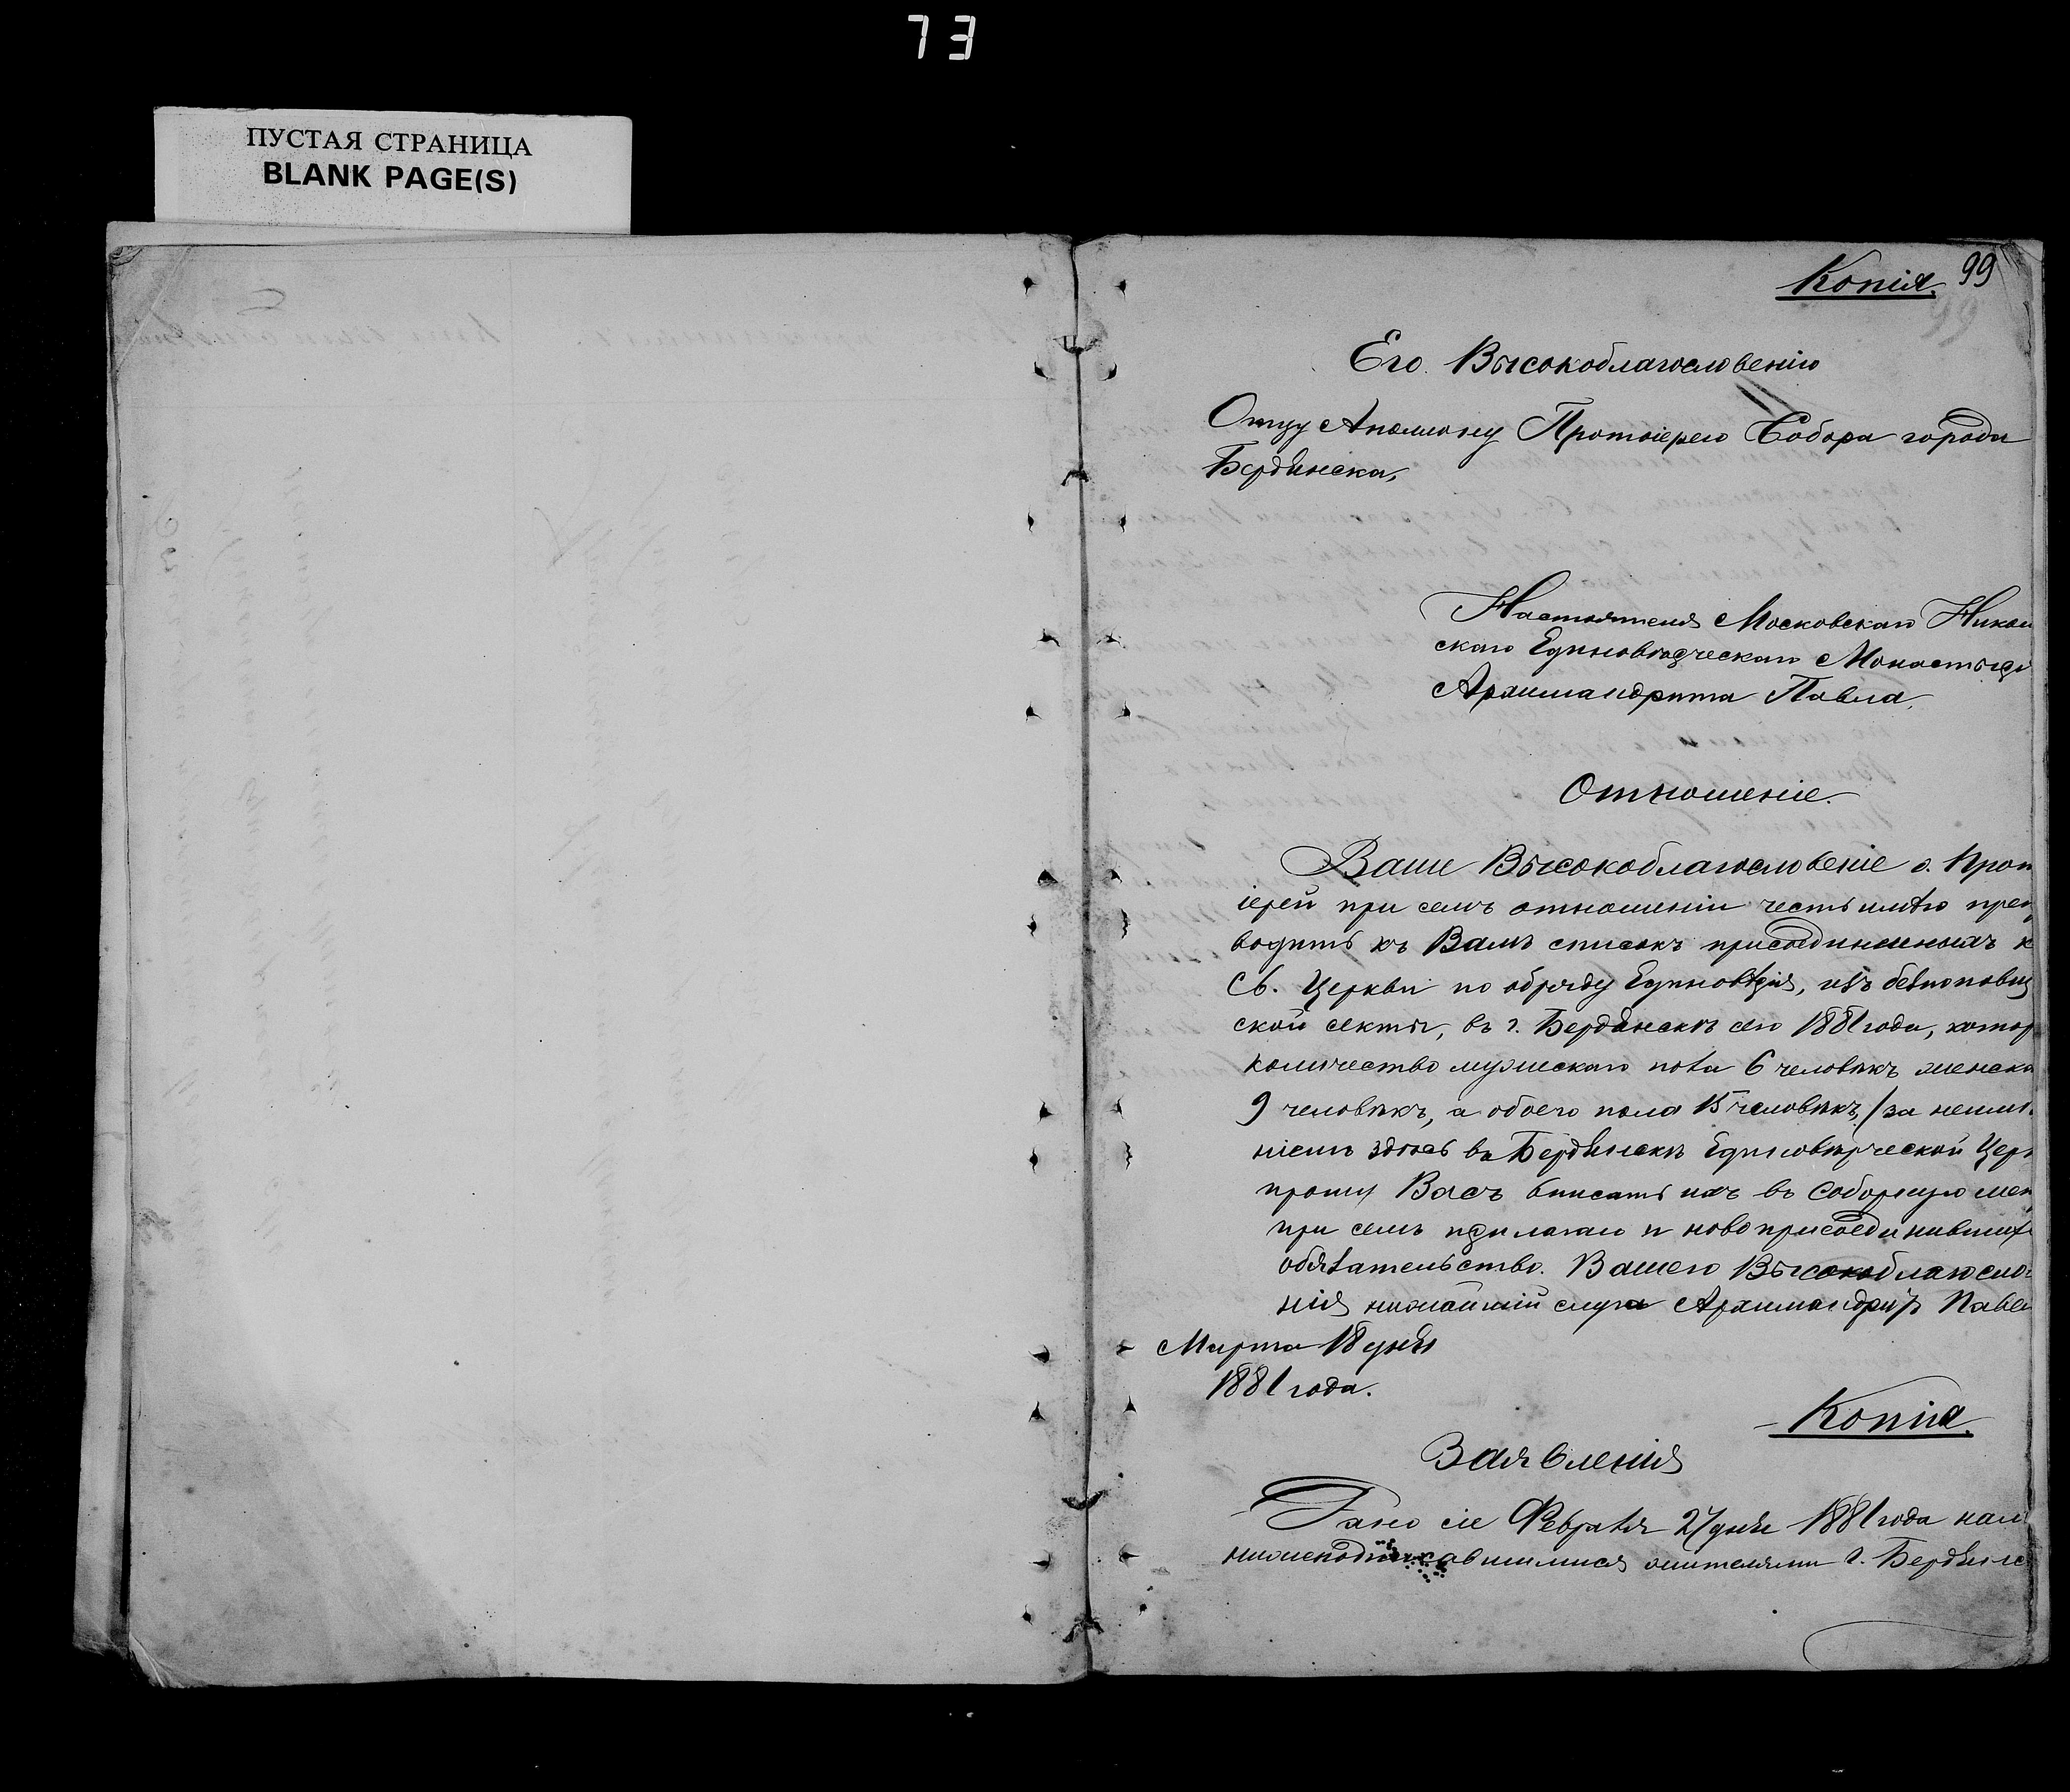 73
ПУСТАЯ СТРАНИЦА
BLANK PAGE(S)
Копія. 99
Его Высокоблагословенію
Отцу Аполлону Протоіерею Собора города
Бердянска,
Настоятеля Московскаго Никол
скаго Единовѣрческаго Монастыря
Архимандрита Павла.
Отношеніе.
Ваше Высокоблагословеніе о. Прот
іерей при семъ отношеніи честь имѣю преп
водить къ Вамъ списокъ присоединенныхъ к
Св. Церкви по обряду Единовѣрія, изъ безпоповщ
ской секты, въ г. Бердянскѣ сего 1881 года, котор
количество мужескаго пола 6 человѣкъ женска
9 человѣкъ, а обоего пола 15 человѣкъ, (за неимѣ
ніемъ здѣсь въ Бердянскѣ Единовѣрческой Церк
прошу Васъ вписать ихъ въ Соборную мет
при семъ прилагаю и новоприсоединивших
обязательство. Вашего Высокоблагосло
нія нижайшій слуга Архимандритъ Павел
Марта 18 дня
1881 года.
Копія.
Заявленія
Дано сіе Февраля 27 дня 1881 года нам
нижеподписавшимися жителями г. Бердянс